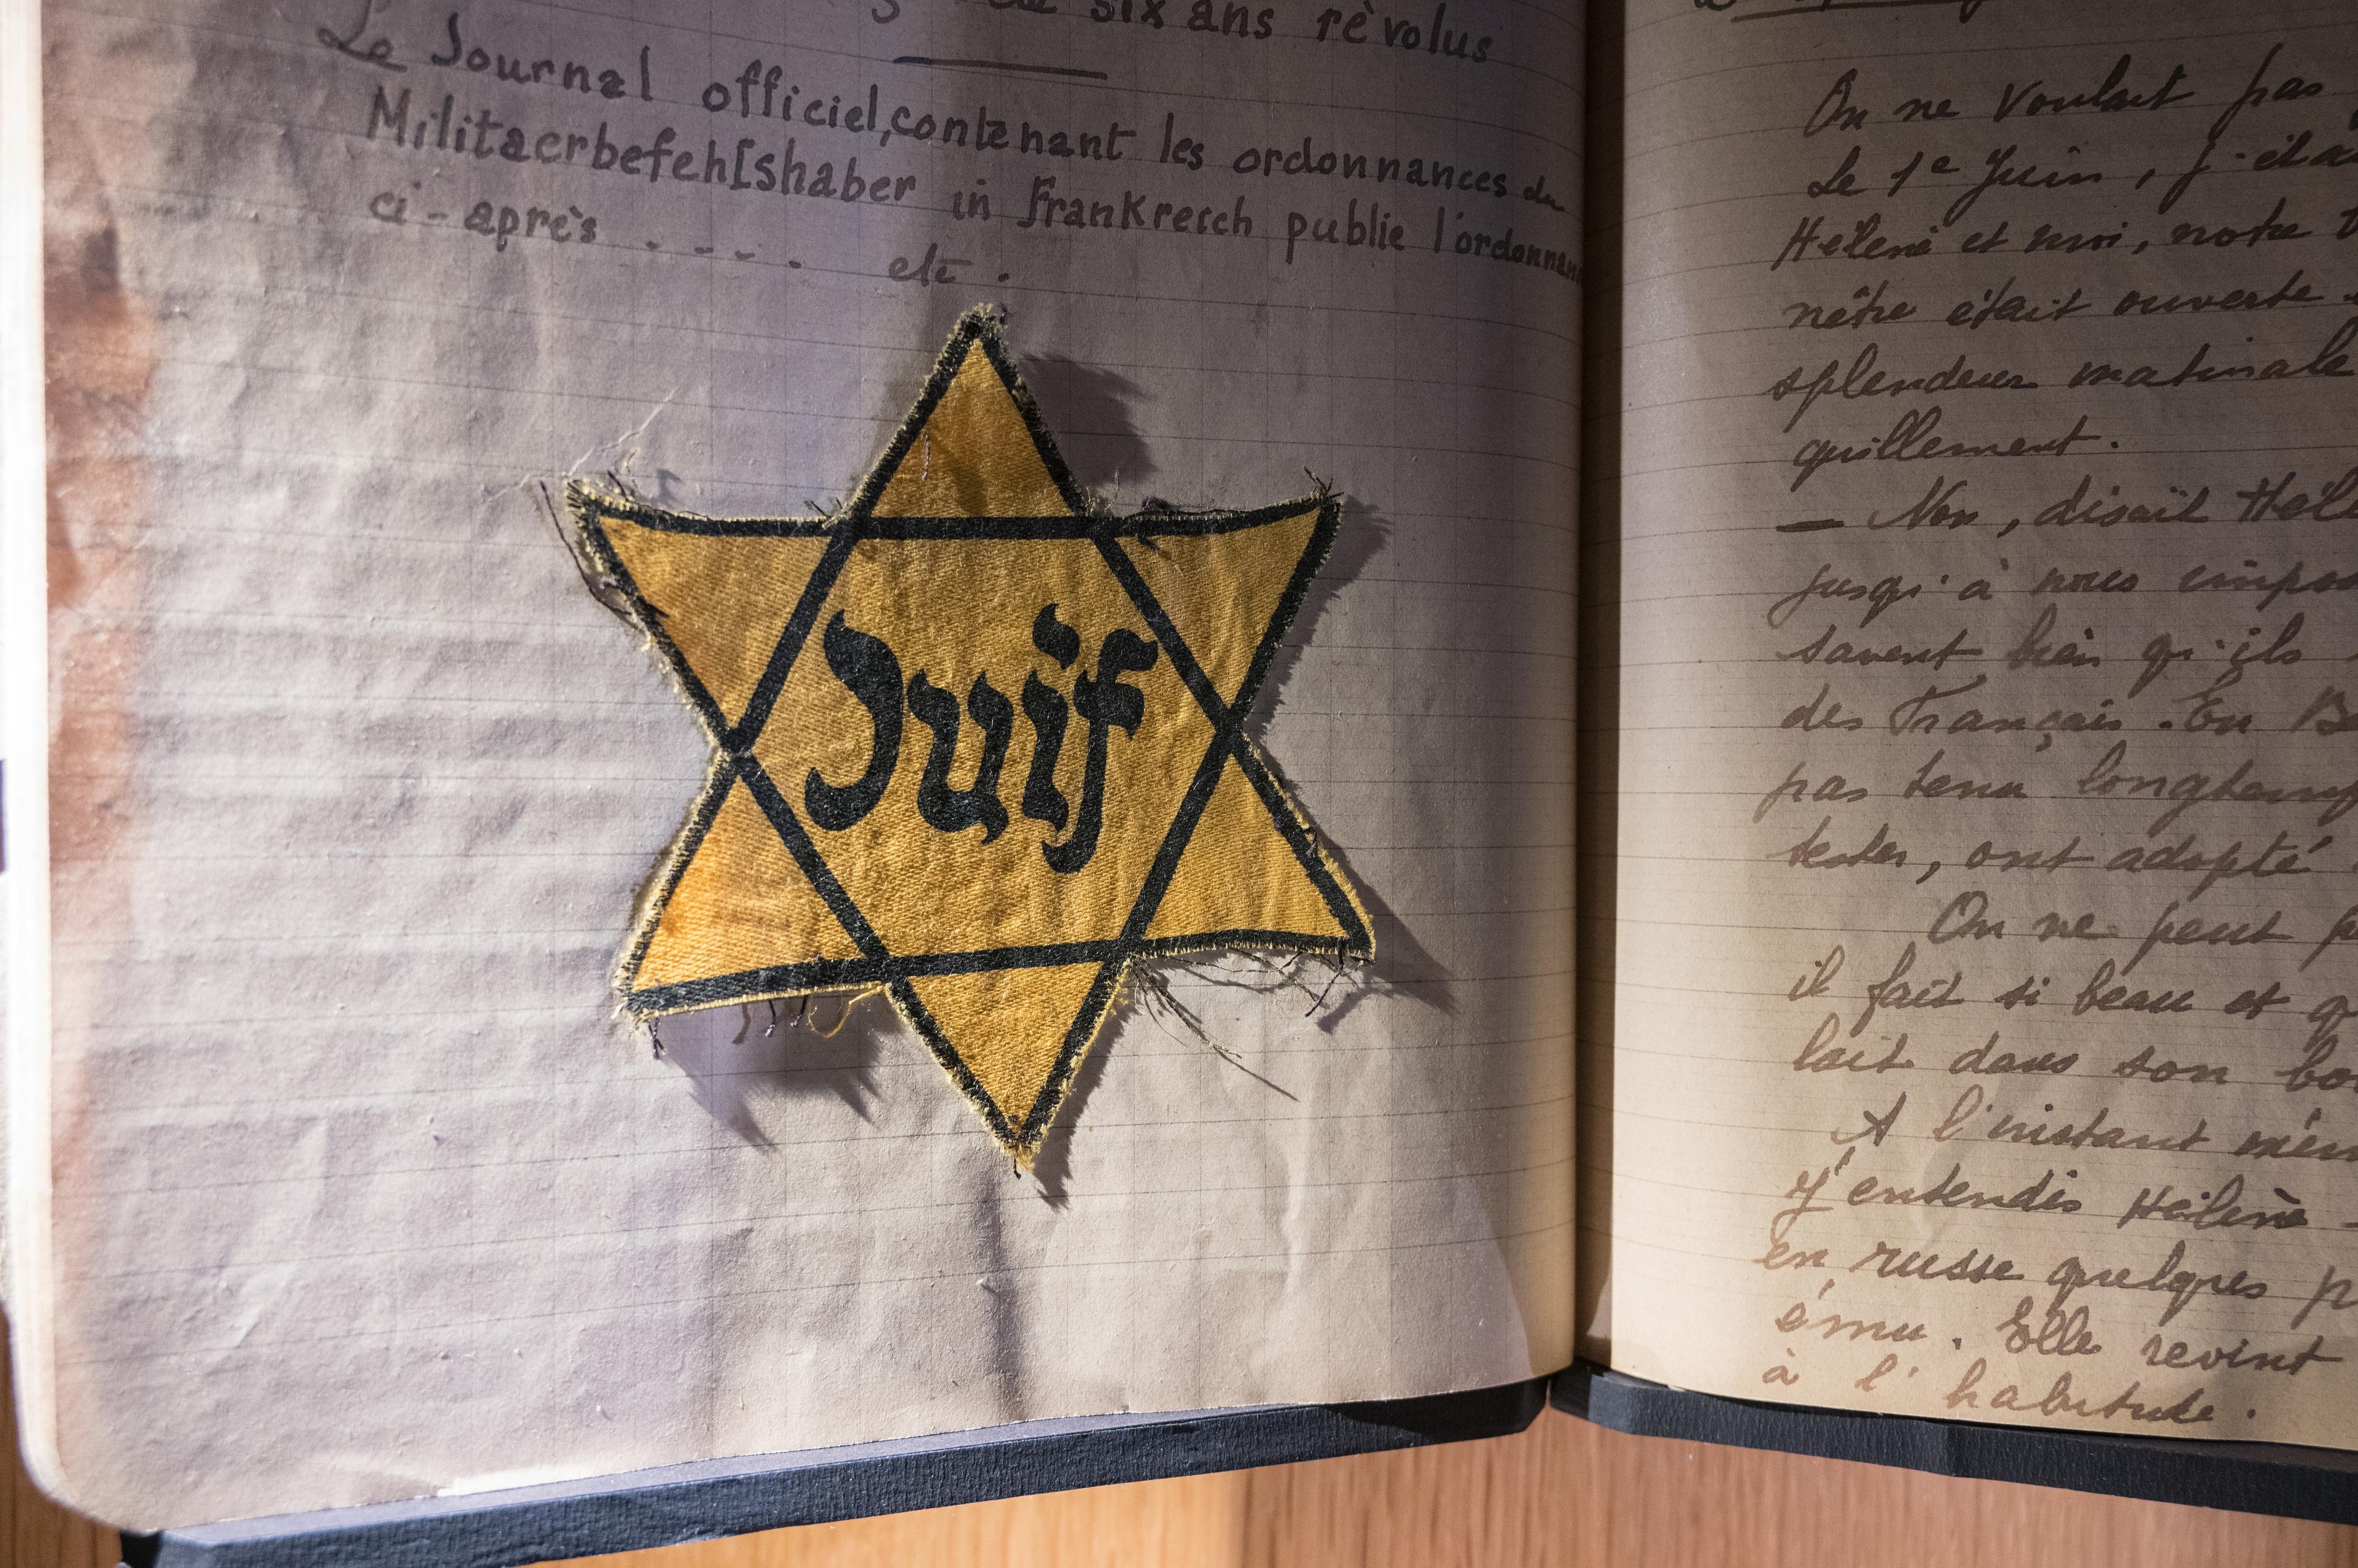 six ans rèvolus
Le Journal officiel, contenant les ordonnances du
Militaerbefehlshaber in Frankreich publie l'ordonnan
ci-après . - - . etc .
Juif
On ne voulait pas
Le 1e Juin, j'éta
Hélène et moi, notre
nêtre était ouverte
splendeur matinale
quillement.
— Non, disait Hél
jusqu'à nous impos
savent bien qu'ils
des Français. En B
pas tenu longtemp
tester, ont adopté
On ne peut p
il fait si beau et q
lait dans son bo
A l'instant mêm
j'entendis Hélène
en russe quelques p
ému. Elle revint
à l'habitude.